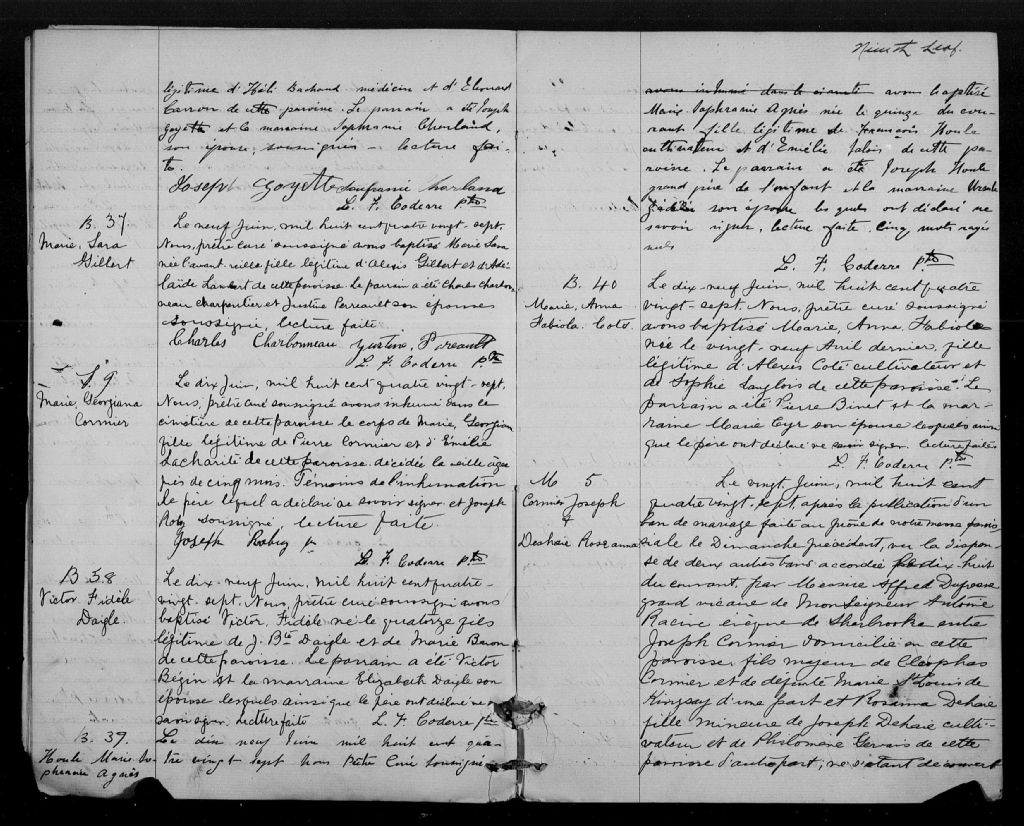 légitime d'Héli Bachand médecin et d'Eléonard
Caron de cette paroisse. Le parrain a été Joseph
Goyette et la marraine Sophranie Charland,
son épouse, soussignés - lecture fai-
te.
Joseph Goyette Soufranie Charland
L. F. Coderre Ptre
B. 37
Marie, Sara
Gilbert
Le neuf Juin, mil huit cent quatre vingt-sept,
Nous, prêtre curé soussigné avons baptisé Marie Sara
née l'avant-veille fille légitime d'Alexis Gilbert et d'Adé-
laide Lambert de cette paroisse. Le parrain a été Charles Charbon-
neau charpentier et Justine Perreault son épouse
soussignés, lecture faite
Charles Charbonneau Justine Pereault
L. F. Coderre Ptre
S. 9
Marie, Georgiana
Cormier
Le dix Juin, mil huit cent quatre vingt-sept,
Nous, prêtre curé soussigné avons inhumé dans le
cimetière de cette paroisse le corps de Marie, Georgiana
fille légitime de Pierre Cormier et d'Emélie
Lacharité de cette paroisse. décédée la veille âgée
près de cinq mois. Témoins de l'inhumation
le père lequel a déclaré ne savoir signer et Joseph
Roby soussigné, lecture faite.
Joseph Roby
L. F. Coderre Ptre
B 38
Victor Fidèle
Daigle
Le dix-neuf Juin, mil huit cent quatre-
vingt-sept, Nous, prêtre curé soussigné avons
baptisé Victor, Fidèle né le quatorze fils
légitime de J. Bte Daigle et de Marie
de cette paroisse. Le parrain a été Victor
Bégin et la marraine Elizabeth Daigle son
épouse lesquels ainsi que le père ont déclaré ne
savoir signer. Lecture faite L. F. Coderre Ptre
B. 39.
Houle Marie So-
phranie Agnès
Le dix neuf Juin mil huit cent qua-
tre vingt sept Nous Prêtre Curé soussigné
Ninth Leaf.
avons inhumé dans le cimetière avons baptisé
Marie Sophranie Agnès née le quinze du cou-
rant fille légitime de François Houle
cultivateur et d'Emélie de cette pa-
roisse. Le parrain a été Joseph Houle
grand père de l'enfant et la marraine Ursule
son épouse lesquels ont déclaré ne
savoir signer, lecture faite. Cinq mots rayés
nuls
L. F. Coderre Ptre
B. 40
Marie, Anna
Fabiola. Coté.
Le dix-neuf Juin, mil huit cent quatre
vingt-sept. Nous, prêtre curé soussigné
avons baptisé Marie, Anna, Fabiola
née le vingt-neuf Avril dernier, fille
légitime d'Alexis Coté cultivateur et
de Sophie Langlois de cette paroisse. Le
parrain a été Pierre Binet et la mar-
raine Marie Cyr son épouse lesquels ainsi
que le père ont déclaré ne savoir signer. lecture faite
L. F. Coderre Ptre
M 5
Cormier Joseph
&
Deshaie Roseanna
Le vingt Juin, mil huit cent
quatre vingt-sept, après la publication d'un
ban de mariage faite au prône de notre messe parois-
siale le Dimanche précédent, vu la dispen-
se de deux autres bans accordée le dix huit
du courant, par Messire Alfred Dufresne
grand vicaire de Monseigneur Antoine
Racine évèque de Sherbrooke entre
Joseph Cormier domicilié en cette
paroisse, fils majeur de Cléophas
Cormier et de défunte Marie St Louis de
Kingsey d'une part et Rosanna Dehaie
fille mineure de Joseph Dehaie culti-
vateur et de Philomène Gervais de cette
paroisse d'autre part; ne s'étant découvert